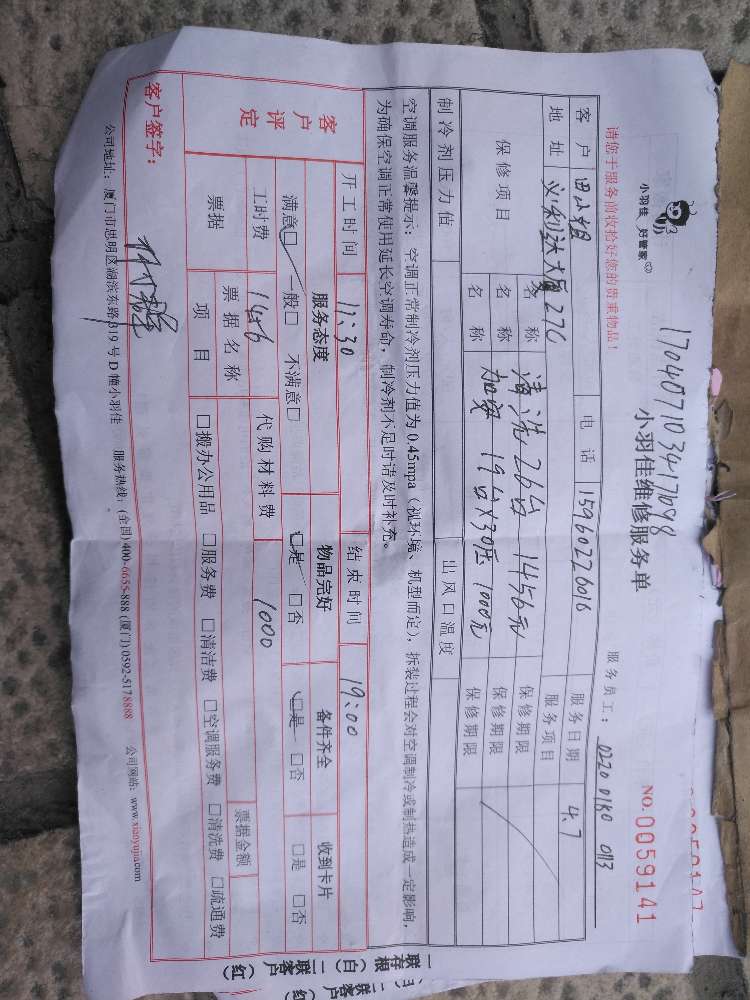 170407103417098
小羽佳 好管家
小羽佳维修服务单
NO.0059141
请您于服务前收拾好您的贵重物品!
服务员工: 0220 0180 0113
客户 田小姐 电话 15960226016 服务日期 4.7
地址 义利达大厦27C 服务项目
保修项目 名称 清洗26台 1456元 保修期限
名称 加氟 19台X30压 1000元 保修期限
名称 保修期限
制冷剂压力值 出风口温度
空调服务温馨提示: 空调正常制冷剂压力值为 0.45mpa(视环境、机型而定), 拆装过程会对空调制冷或制热造成一定影响,
为确保空调正常使用延长空调寿命, 制冷剂不足时请及时补充。
客户评定
开工时间 11:30 结束时间 19:00
服务态度 物品完好 备件齐全 收到卡片
满意□ 一般□ 不满意□ □是 □否 □是 □否 □是 □否
工时费 1456 代购材料费 1000
票据 票据名称 票据金额
项目 □搬办公用品 □服务费 □清洁费 □空调服务费 □清洗费 □疏通费
客户签字:
公司地址: 厦门市思明区湖滨东路319号D幢小羽佳 服务热线: (全国)400-6655-888 (厦门)0592-5178888 公司网站: www.xiaoyujia.com
一联存根(白) 二联客户(红)